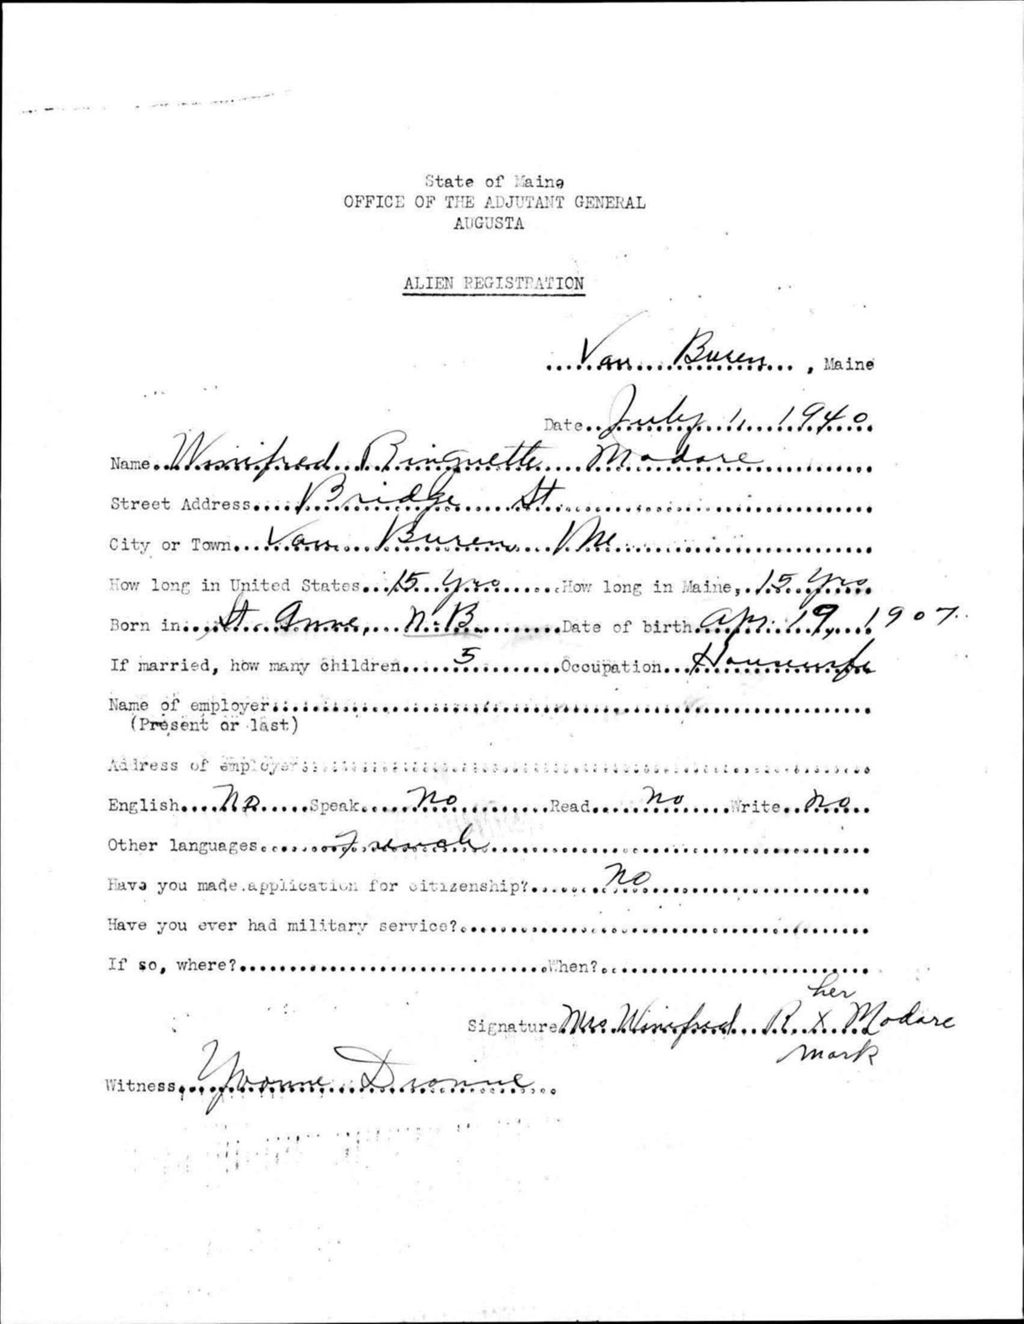 State of Maine
OFFICE OF THE ADJUTANT GENERAL
AUGUSTA
ALIEN REGISTRATION
Van Buren, Maine
Date July 1, 1940
Name Winifred Ringuette Modore
Street Address Bridge St
City or Town Van Buren Me
How long in United States 15 yrs How long in Maine, 15 yrs
Born in St. Anne, N.B. Date of birth Apr. 19, 1907
If married, how many children 5 Occupation Housewife
Name of employer
(Present or last)
Address of employer
English No Speak No Read No Write No
Other languages French
Have you made application for citizenship? No
Have you ever had military service?
If so, where? When?
her
Signature Mrs Winifred R. X Modore
mark
Witness Yvonne Dionne